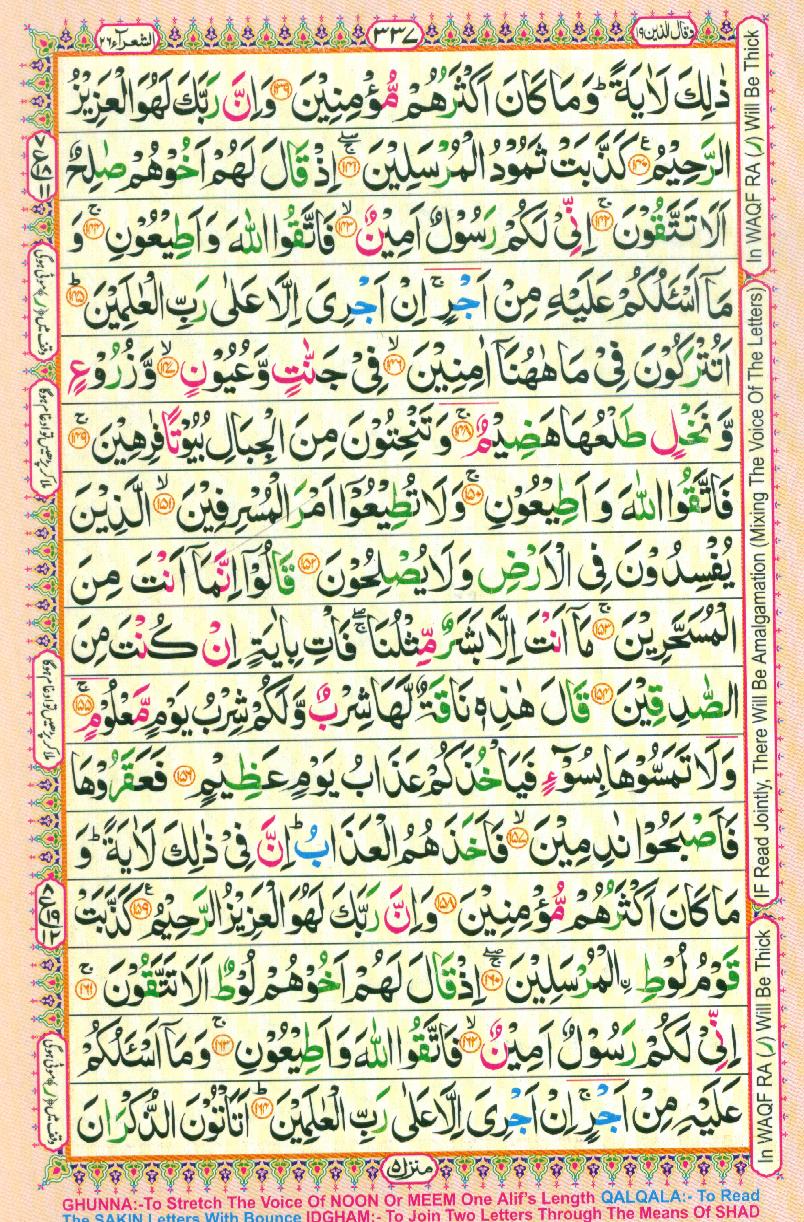 وقال الذین ۱۹
۳۳۷
الشعرآء ۲۶
ذٰلِكَ لَاٰيَةً ؕ وَمَا كَانَ اَكْثَرُهُمْ مُّؤْمِنِيْنَ ﴿۱۳۹﴾ وَاِنَّ رَبَّكَ لَهُوَ الْعَزِيْزُ
الرَّحِيْمُ ﴿۱۴۰﴾ كَذَّبَتْ ثَمُوْدُ الْمُرْسَلِيْنَ ﴿۱۴۱﴾ اِذْ قَالَ لَهُمْ اَخُوْهُمْ صٰلِحٌ
اَلَا تَتَّقُوْنَ ﴿۱۴۲﴾ اِنِّيْ لَكُمْ رَسُوْلٌ اَمِيْنٌ ﴿۱۴۳﴾ فَاتَّقُوا اللّٰهَ وَاَطِيْعُوْنِ ﴿۱۴۴﴾ وَ
مَاۤ اَسْـَٔلُكُمْ عَلَيْهِ مِنْ اَجْرٍ ۚ اِنْ اَجْرِيَ اِلَّا عَلٰى رَبِّ الْعٰلَمِيْنَ ﴿۱۴۵﴾
اَتُتْرَكُوْنَ فِيْ مَا هٰهُنَاۤ اٰمِنِيْنَ ﴿۱۴۶﴾ فِيْ جَنّٰتٍ وَّعُيُوْنٍ ﴿۱۴۷﴾ وَّزُرُوْعٍ
وَّنَخْلٍ طَلْعُهَا هَضِيْمٌ ﴿۱۴۸﴾ وَتَنْحِتُوْنَ مِنَ الْجِبَالِ بُيُوْتًا فٰرِهِيْنَ ﴿۱۴۹﴾
فَاتَّقُوا اللّٰهَ وَاَطِيْعُوْنِ ﴿۱۵۰﴾ وَلَا تُطِيْعُوْۤا اَمْرَ الْمُسْرِفِيْنَ ﴿۱۵۱﴾ الَّذِيْنَ
يُفْسِدُوْنَ فِي الْاَرْضِ وَلَا يُصْلِحُوْنَ ﴿۱۵۲﴾ قَالُوْۤا اِنَّمَاۤ اَنْتَ مِنَ
الْمُسَحَّرِيْنَ ﴿۱۵۳﴾ مَاۤ اَنْتَ اِلَّا بَشَرٌ مِّثْلُنَا ۖ فَاْتِ بِاٰيَةٍ اِنْ كُنْتَ مِنَ
الصّٰدِقِيْنَ ﴿۱۵۴﴾ قَالَ هٰذِهٖ نَاقَةٌ لَّهَا شِرْبٌ وَّلَكُمْ شِرْبُ يَوْمٍ مَّعْلُوْمٍ ﴿۱۵۵﴾
وَلَا تَمَسُّوْهَا بِسُوْٓءٍ فَيَاْخُذَكُمْ عَذَابُ يَوْمٍ عَظِيْمٍ ﴿۱۵۶﴾ فَعَقَرُوْهَا
فَاَصْبَحُوْا نٰدِمِيْنَ ﴿۱۵۷﴾ فَاَخَذَهُمُ الْعَذَابُ ؕ اِنَّ فِيْ ذٰلِكَ لَاٰيَةً ؕ وَ
مَا كَانَ اَكْثَرُهُمْ مُّؤْمِنِيْنَ ﴿۱۵۸﴾ وَاِنَّ رَبَّكَ لَهُوَ الْعَزِيْزُ الرَّحِيْمُ ﴿۱۵۹﴾ كَذَّبَتْ
قَوْمُ لُوْطِ ۨ الْمُرْسَلِيْنَ ﴿۱۶۰﴾ اِذْ قَالَ لَهُمْ اَخُوْهُمْ لُوْطٌ اَلَا تَتَّقُوْنَ ﴿۱۶۱﴾
اِنِّيْ لَكُمْ رَسُوْلٌ اَمِيْنٌ ﴿۱۶۲﴾ فَاتَّقُوا اللّٰهَ وَاَطِيْعُوْنِ ﴿۱۶۳﴾ وَمَاۤ اَسْـَٔلُكُمْ
عَلَيْهِ مِنْ اَجْرٍ ۚ اِنْ اَجْرِيَ اِلَّا عَلٰى رَبِّ الْعٰلَمِيْنَ ﴿۱۶۴﴾ اَتَاْتُوْنَ الذُّكْرَانَ
منزل ۵
In WAQF RA (ر) Will Be Thick
(IF Read Jointly, There Will Be Amalgamation (Mixing The Voice Of The Letters)
In WAQF RA (ر) Will Be Thick
GHUNNA:-To Stretch The Voice Of NOON Or MEEM One Alif's Length QALQALA:- To Read
The SAKIN Letters With Bounce IDGHAM:- To Join Two Letters Through The Means Of SHAD